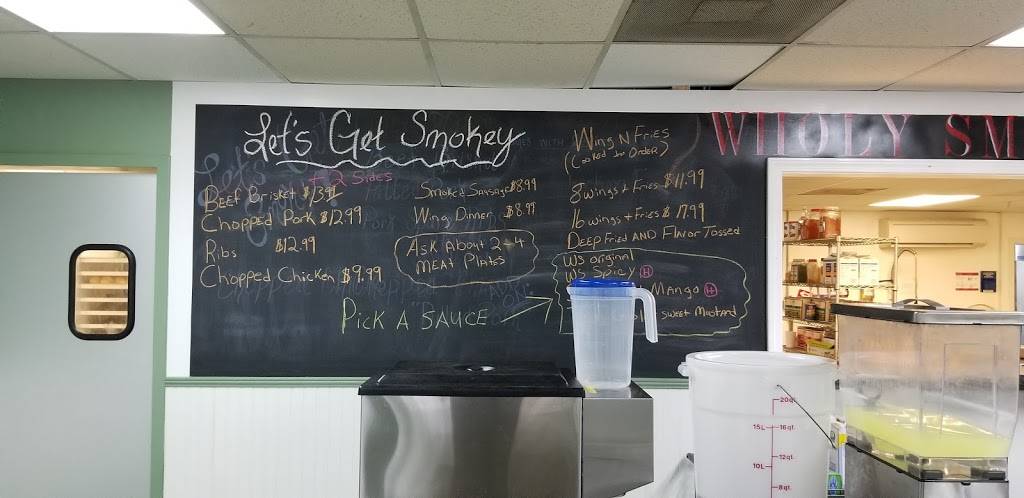 Let's Get Smokey
+ 2 Sides
Beef Brisket $13.99
Chopped Pork $12.99
Ribs $12.99
Chopped Chicken $9.99
Smoked Sausage $8.99
Wing Dinner $8.99
Ask About 2+4
MEAT Plates
PICK A SAUCE
Wing N Fries
(Cooked to Order)
8 wings + Fries $11.99
16 wings + Fries $17.99
Deep Fried AND Flavor Tossed
WS original
WS Spicy H
Mango H
Sweet Mustard
WHOLY SM
20qt.
15L 16qt.
12qt.
10L
8qt.